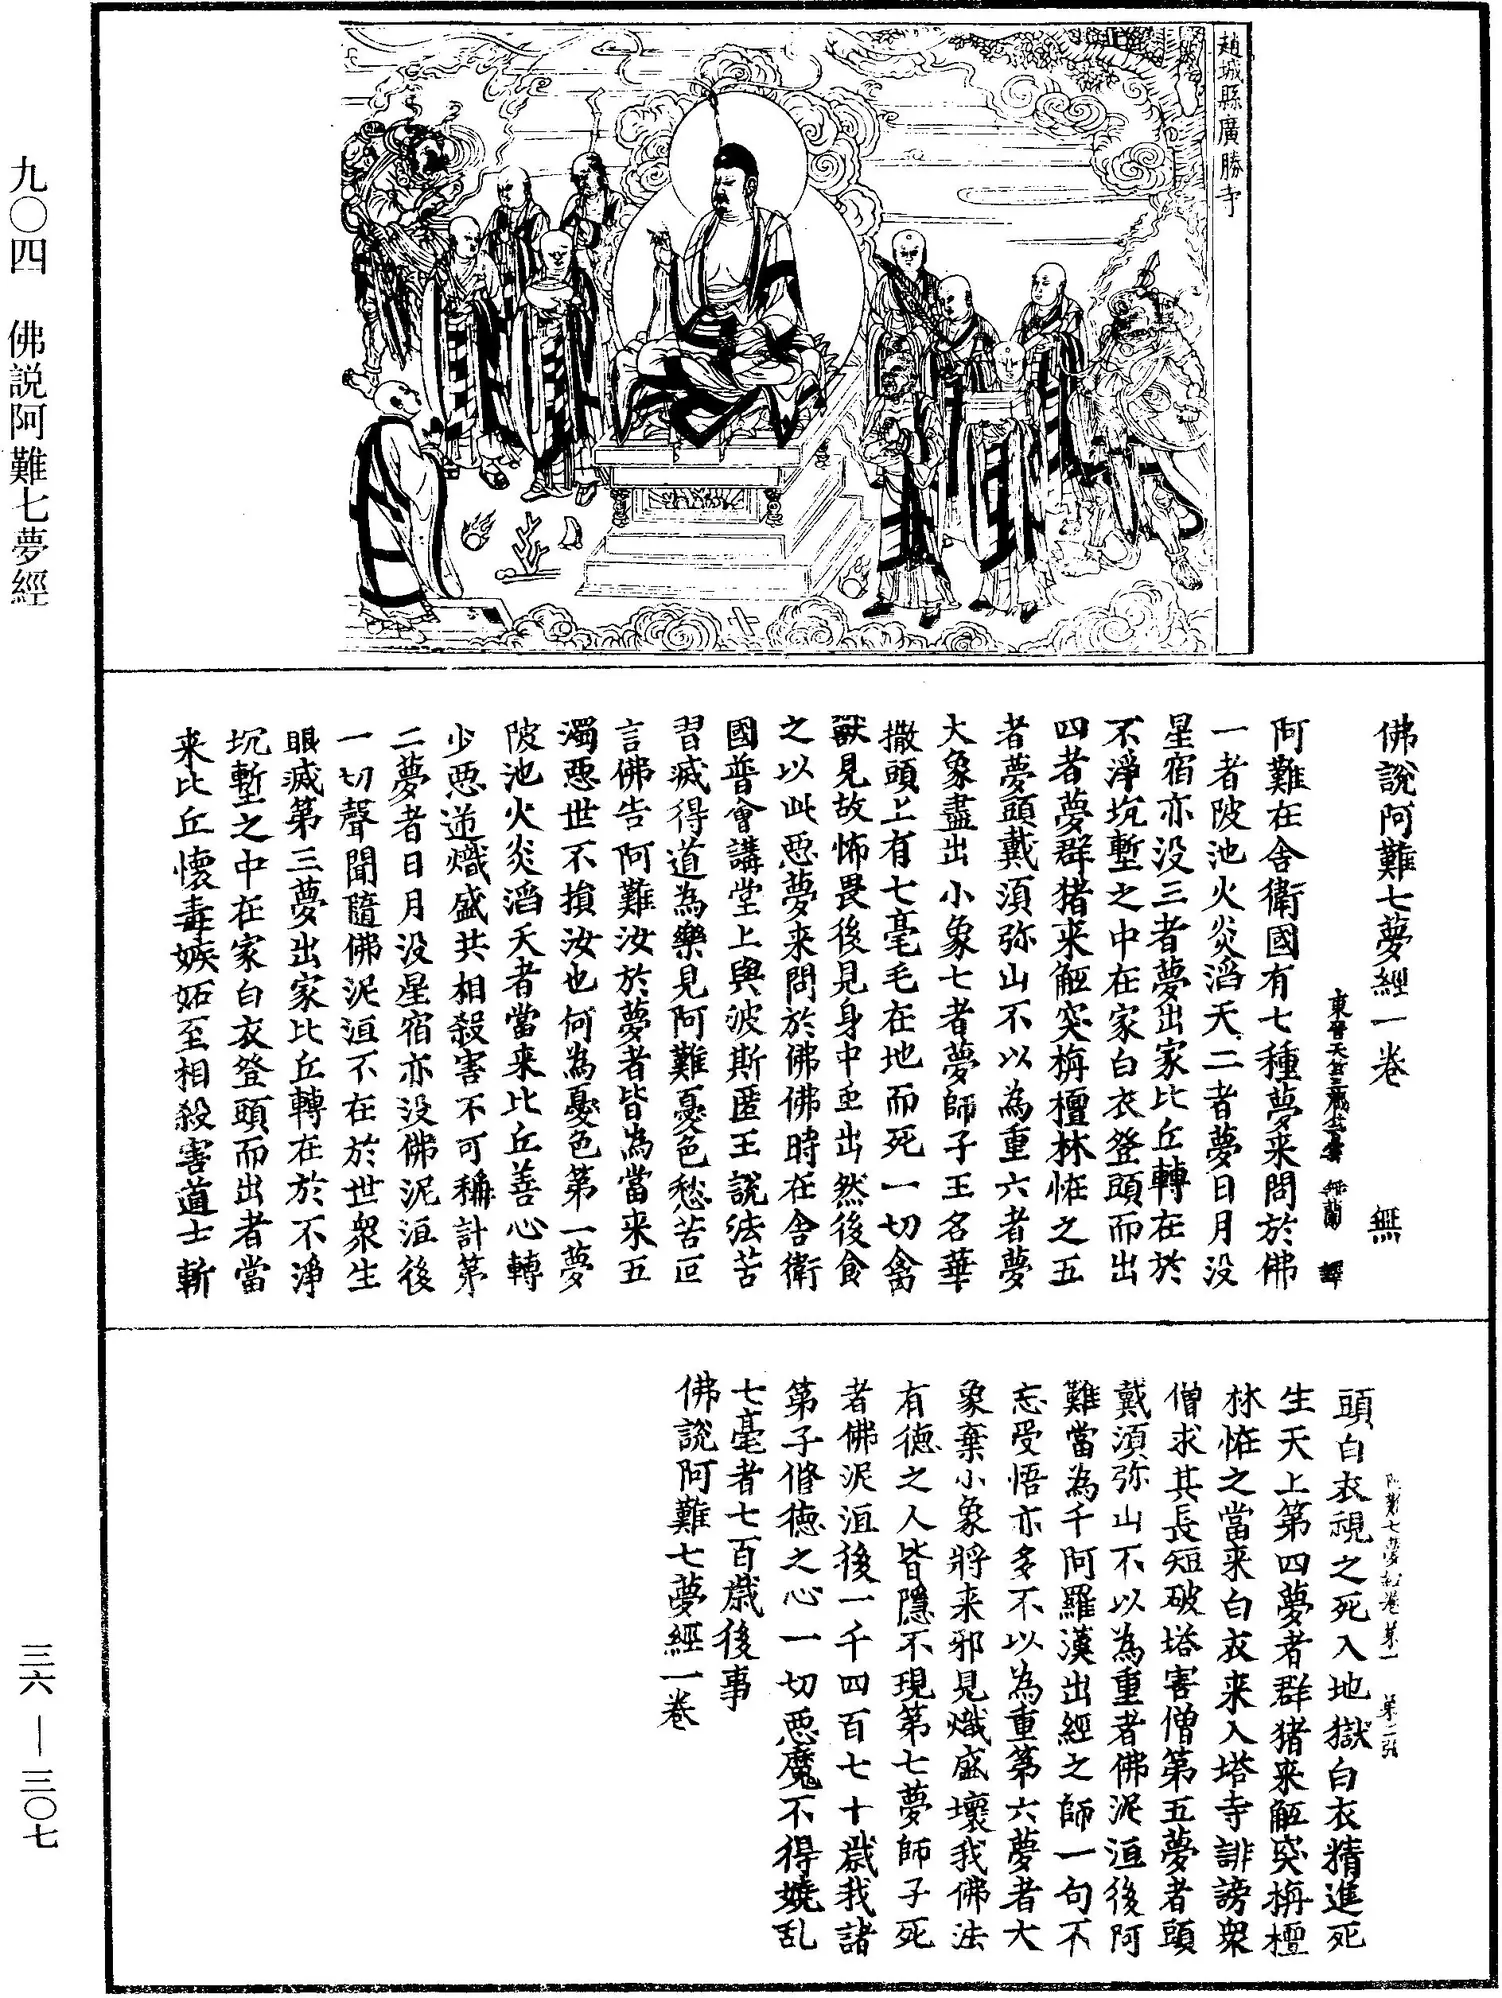 九〇四 佛説阿難七夢經
三六—三〇七
趙城縣廣勝寺
佛說阿難七夢經一卷 無
東晉天竺三藏 竺曇 無蘭 譯
阿難在舍衛國有七種夢来問於佛
一者陂池火炎滔天二者夢日月没
星宿亦没三者夢出家比丘轉在於
不淨坑塹之中在家白衣登頭而出
四者夢群猪来觝突栴檀林恠之五
者夢頭戴須弥山不以為重六者夢
大象盡出小象七者夢師子王名華
撒頭上有七毫毛在地而死一切禽
獸見故怖畏後見身中虫出然後食
之以此惡夢来問於佛佛時在舍衛
國普會講堂上與波斯匿王說法苦
習滅得道為樂見阿難憂色愁苦叵
言佛告阿難汝於夢者皆為當来五
濁惡世不損汝也何為憂色第一夢
陂池火炎滔天者當来比丘善心轉
少惡逆熾盛共相殺害不可稱計第
二夢者日月没星宿亦没佛泥洹後
一切聲聞隨佛泥洹不在於世衆生
眼滅第三夢出家比丘轉在於不淨
坑塹之中在家白衣登頭而出者當
来比丘懷毒嫉妬至相殺害道士斬
阿難七夢經卷第一 第二張
頭白衣視之死入地獄白衣精進死
生天上第四夢者群猪来觝突栴檀
林恠之當来白衣来入塔寺誹謗衆
僧求其長短破塔害僧第五夢者頭
戴須弥山不以為重者佛泥洹後阿
難當為千阿羅漢出經之師一句不
忘受悟亦多不以為重第六夢者大
象棄小象將来邪見熾盛壞我佛法
有德之人皆隱不現第七夢師子死
者佛泥洹後一千四百七十歲我諸
第子脩德之心一切惡魔不得嬈乱
七毫者七百歲後事
佛說阿難七夢經一卷